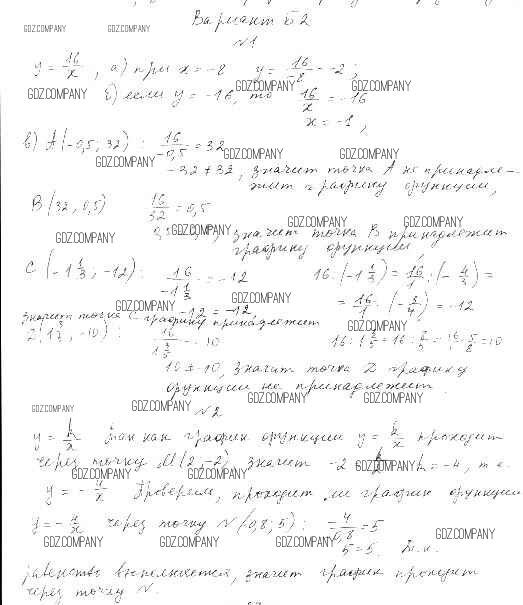 Вариант Б2
№1
y = 16/x, а) при x = -8 y = 16/-8 = -2;
б) если y = -16, то 16/x = -16
x = -1,
в) A(-0,5; 32): 16/-0,5 = 32
-32 ≠ 32, значит точка A не принадле-
жит графику функции,
B(32, 0,5) 16/32 = 0,5
значит точка B принадлежит
графику функции,
C(-1 1/3, -12): 16/-1 1/3 = -12 16:(-1 1/3) = 16/1:(-4/3) =
= 16/1·(-3/4) = -12
-12 = -12,
значит точка C графику принадлежит
(1 3/5, -10): 16/1 3/5 = -10 16:1 3/5 = 16:8/5 = 16·5/8 = 10
10 ≠ -10, значит точка D графику
функции не принадлежит.
№2
y = k/x Так как график функции y = k/x проходит
через точку M(2,-2), значит -2 k = -4, т.е.
y = -4/x Проверим, проходит ли график функции
y = -4/x через точку N(0,8; 5): -4/0,8 = 5
5 = 5. Т.к.
равенство выполняется, значит график проходит
через точку N.
GDZ.COMPANY